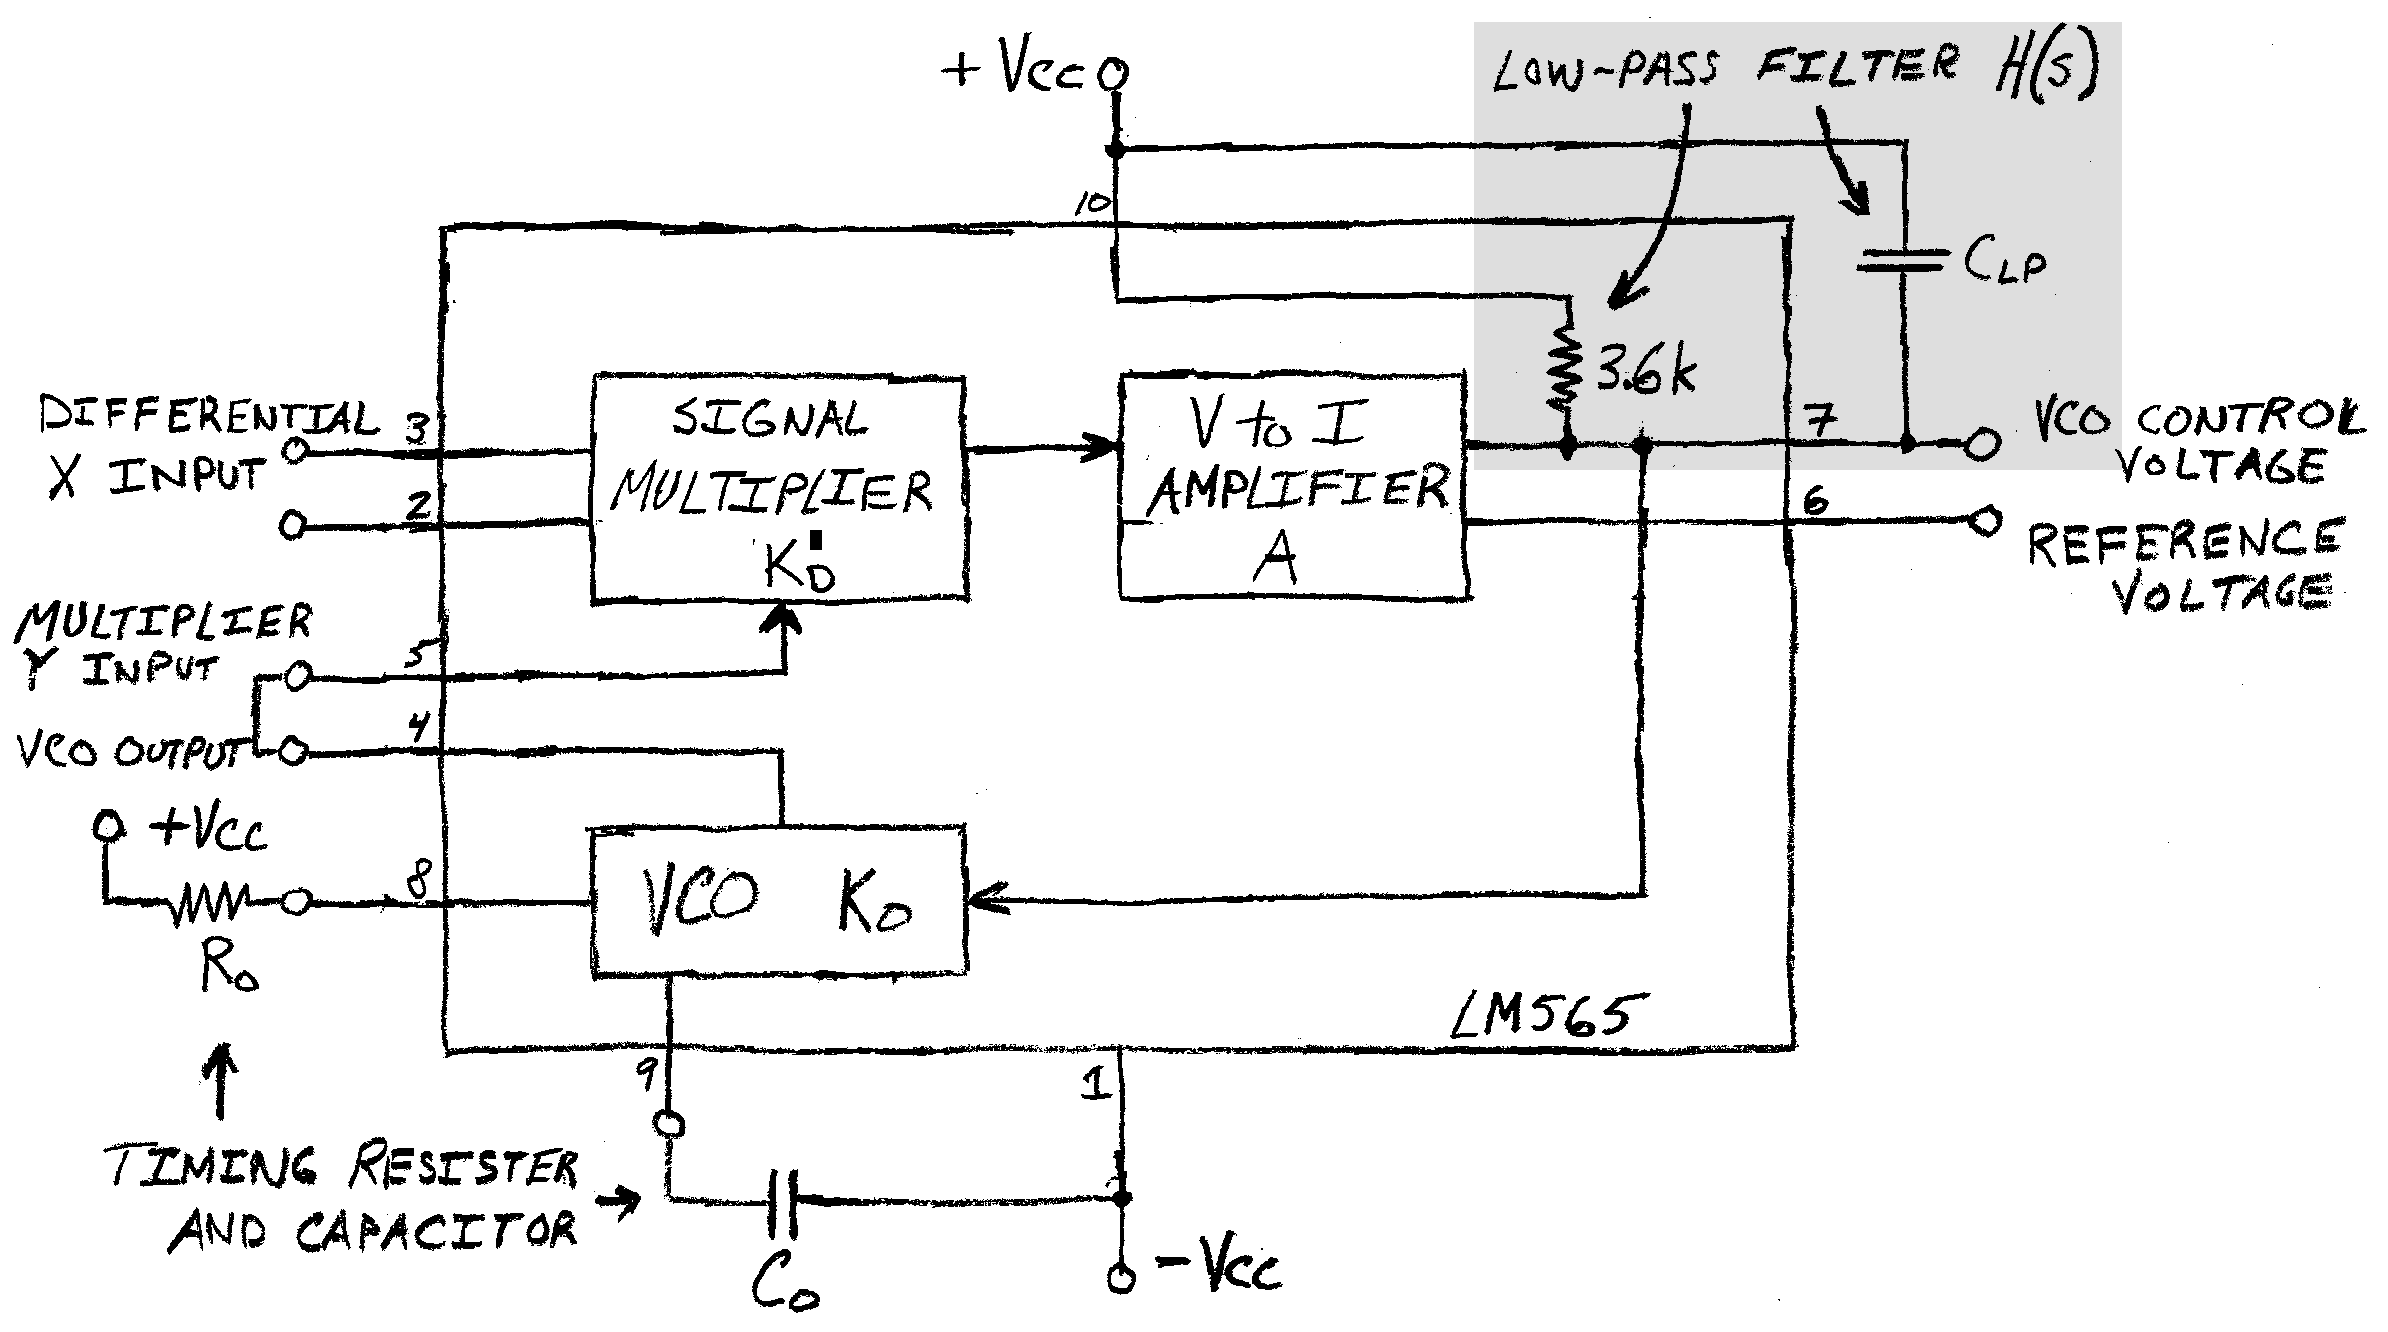 + Vcc
LOW-PASS FILTER H(s)
10
CLP
3.6k
DIFFERENTIAL
X INPUT
3
2
SIGNAL
MULTIPLIER
K'D
V to I
AMPLIFIER
A
7
VCO CONTROL
VOLTAGE
6
REFERENCE
VOLTAGE
MULTIPLIER
Y INPUT
5
4
VCO OUTPUT
+Vcc
8
Ro
VCO Ko
LM565
9
1
TIMING RESISTER
AND CAPACITOR
Co
-Vcc